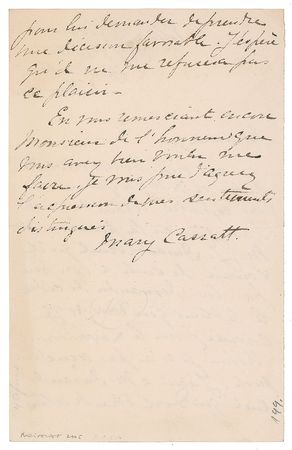 pour lui demander de prendre
une decision favorable J'espère
qu'il ne me refusera pas
ce plaisir -
En vous remerciant encore
Monsieur de l'honneur que
vous avez bien voulu me
faire, je vous prie d'agreer
l'expression de mes sentiments
distingués
Mary Cassatt.
199.